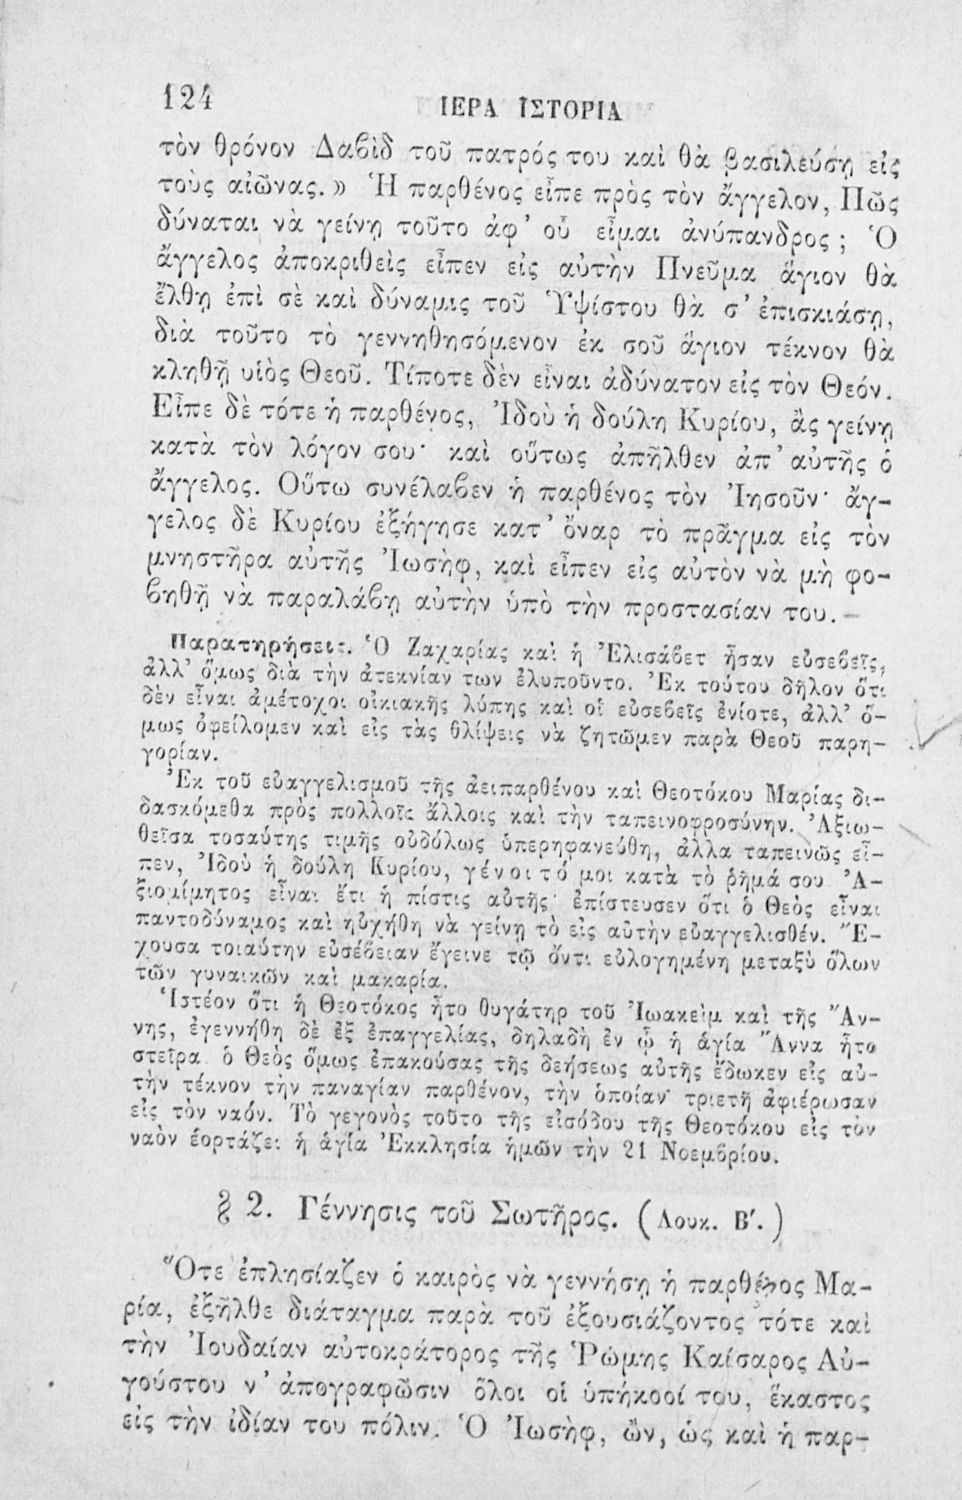 124
ΙΕΡΑ ΙΣΤΟΡΙΑ
τὸν θρόνον Δαβὶδ τοῦ πατρός του καὶ θὰ βασιλεύσῃ εἰς
τοὺς αἰῶνας.» Ἡ παρθένος εἶπε πρὸς τὸν ἄγγελον, Πῶς
δύναται νὰ γείνῃ τοῦτο ἀφ' οὗ εἶμαι ἀνύπανδρος; Ὁ
ἄγγελος ἀποκριθεὶς εἶπεν εἰς αὐτὴν Πνεῦμα ἅγιον θὰ
ἔλθῃ ἐπὶ σὲ καὶ δύναμις τοῦ Ὑψίστου θὰ σ' ἐπισκιάσῃ,
διὰ τοῦτο τὸ γεννηθησόμενον ἐκ σοῦ ἅγιον τέκνον θὰ
κληθῇ υἱὸς Θεοῦ. Τίποτε δὲν εἶναι ἀδύνατον εἰς τὸν Θεόν.
Εἶπε δὲ τότε ἡ παρθένος, Ἰδοὺ ἡ δούλη Κυρίου, ἂς γείνῃ
κατὰ τὸν λόγον σου· καὶ οὕτως ἀπῆλθεν ἀπ' αὐτῆς ὁ
ἄγγελος. Οὕτω συνέλαβεν ἡ παρθένος τὸν Ἰησοῦν· ἄγ-
γελος δὲ Κυρίου ἐξήγησε κατ' ὄναρ τὸ πρᾶγμα εἰς τὸν
μνηστῆρα αὐτῆς Ἰωσὴφ, καὶ εἶπεν εἰς αὐτὸν νὰ μὴ φο-
βηθῇ νὰ παραλάβῃ αὐτὴν ὑπὸ τὴν προστασίαν του.
Παρατηρήσεις. Ὁ Ζαχαρίας καὶ ἡ Ἐλισάβετ ἦσαν εὐσεβεῖς,
ἀλλ' ὅμως διὰ τὴν ἀτεκνίαν των ἐλυποῦντο. Ἐκ τούτου δῆλον ὅτι
δὲν εἶναι ἀμέτοχοι οἰκιακῆς λύπης καὶ οἱ εὐσεβεῖς ἐνίοτε, ἀλλ' ὅ-
μως ὀφείλομεν καὶ εἰς τὰς θλίψεις νὰ ζητῶμεν παρὰ Θεοῦ παρη-
γορίαν.
Ἐκ τοῦ εὐαγγελισμοῦ τῆς ἀειπαρθένου καὶ Θεοτόκου Μαρίας δι-
δασκόμεθα πρὸς πολλοῖς ἄλλοις καὶ τὴν ταπεινοφροσύνην. Ἀξιω-
θεῖσα τοσαύτης τιμῆς οὐδόλως ὑπερηφανεύθη, ἀλλα ταπεινῶς εἶ-
πεν, Ἰδοὺ ἡ δούλη Κυρίου, γένοιτό μοι κατὰ τὸ ῥῆμά σου Ἀ-
ξιομίμητος εἶναι ἔτι ἡ πίστις αὐτῆς· ἐπίστευσεν ὅτι ὁ Θεὸς εἶναι
παντοδύναμος καὶ ηὐχήθη νὰ γείνῃ τὸ εἰς αὐτὴν εὐαγγελισθέν. Ἔ-
χουσα τοιαύτην εὐσέβειαν ἔγεινε τῷ ὄντι εὐλογημένη μεταξὺ ὅλων
τῶν γυναικῶν καὶ μακαρία.
Ἰστέον ὅτι ἡ Θεοτόκος ἦτο θυγάτηρ τοῦ Ἰωακεὶμ καὶ τῆς Ἄν-
νης, ἐγεννήθη δὲ ἐξ ἐπαγγελίας, δηλαδὴ ἐν ᾧ ἡ ἁγία Ἄννα ἦτο
στεῖρα ὁ Θεὸς ὅμως ἐπακούσας τῆς δεήσεως αὐτῆς ἔδωκεν εἰς αὐ-
τὴν τέκνον τὴν παναγίαν παρθένον, τὴν ὁποίαν τριετῆ ἀφιέρωσαν
εἰς τὸν ναόν. Τὸ γεγονὸς τοῦτο τῆς εἰσόδου τῆς Θεοτόκου εἰς τὸν
ναὸν ἑορτάζει ἡ ἁγία Ἐκκλησία ἡμῶν τὴν 21 Νοεμβρίου.
§ 2. Γέννησις τοῦ Σωτῆρος. (Λουκ. Β'.)
Ὅτε ἐπλησίαζεν ὁ καιρὸς νὰ γεννήσῃ ἡ παρθένος Μα-
ρία, ἐξῆλθε διάταγμα παρὰ τοῦ ἐξουσιάζοντος τότε καὶ
τὴν Ἰουδαίαν αὐτοκράτορος τῆς Ῥώμης Καίσαρος Αὐ-
γούστου ν' ἀπογραφῶσιν ὅλοι οἱ ὑπήκοοί του, ἕκαστος
εἰς τὴν ἰδίαν του πόλιν. Ὁ Ἰωσὴφ, ὢν, ὡς καὶ ἡ παρ-